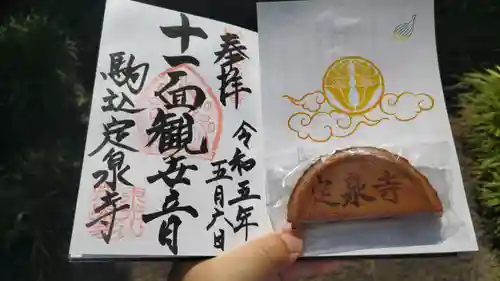 奉拝
令和五年
五月六日
十一面観世音
駒込定泉寺
定泉寺